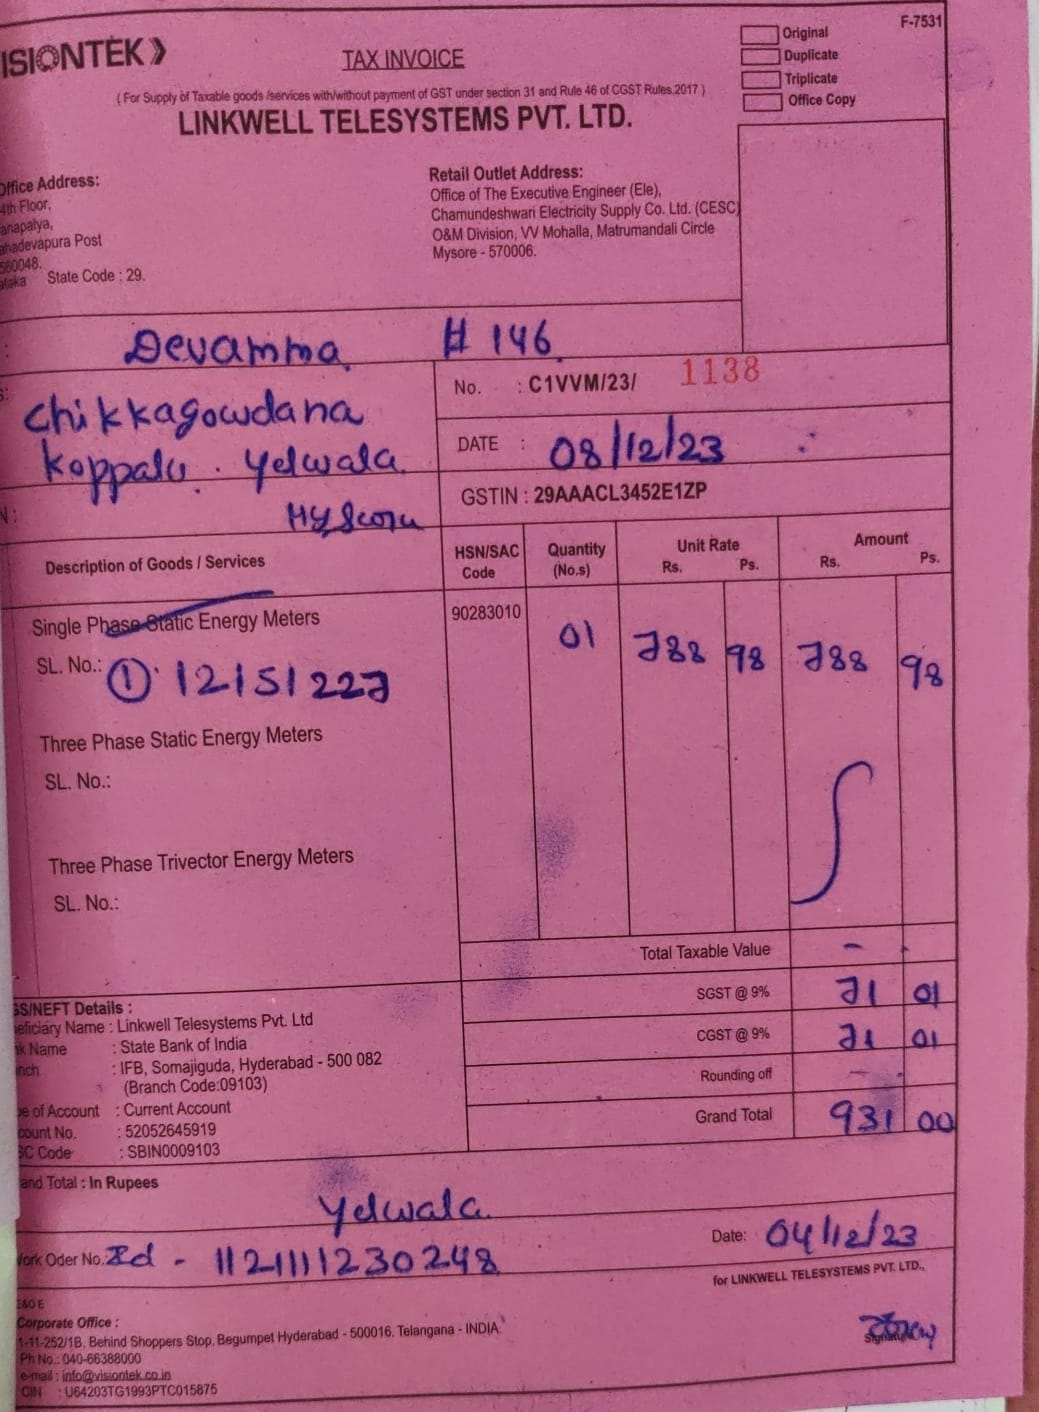 F-7531
ISIONTEK
TAX INVOICE
Original
Duplicate
Triplicate
Office Copy
( For Supply of Taxable goods /services with/without payment of GST under section 31 and Rule 46 of CGST Rules,2017 )
LINKWELL TELESYSTEMS PVT. LTD.
Office Address:
4th Floor,
anapalya,
ahadevapura Post
560048.
ataka State Code : 29.
Retail Outlet Address:
Office of The Executive Engineer (Ele),
Chamundeshwari Electricity Supply Co. Ltd. (CESC)
O&M Division, VV Mohalla, Matrumandali Circle
Mysore - 570006.
Devamma # 146
Chikkagowdana
Koppalu. Yelwala
No. : C1VVM/23/ 1138
DATE : 08/12/23
GSTIN : 29AAACL3452E1ZP
Description of Goods / Services HSN/SAC Code Quantity (No.s) Unit Rate Rs. Ps. Amount Rs. Ps.
Single Phase Static Energy Meters 90283010 01 788 98 788 98
SL. No.: ① 12151227
Three Phase Static Energy Meters
SL. No.:
Three Phase Trivector Energy Meters
SL. No.:
Total Taxable Value -
SGST @ 9% 71 01
CGST @ 9% 71 01
Rounding off -
Grand Total 931 00
GS/NEFT Details :
eficiary Name : Linkwell Telesystems Pvt. Ltd
nk Name : State Bank of India
anch : IFB, Somajiguda, Hyderabad - 500 082
(Branch Code:09103)
pe of Account : Current Account
count No. : 52052645919
SC Code : SBIN0009103
and Total : In Rupees
Yelwala
Work Oder No. - 112111230248
Date: 04/12/23
for LINKWELL TELESYSTEMS PVT. LTD.,
Signature
E&O E
Corporate Office :
1-11-252/1B, Behind Shoppers Stop, Begumpet Hyderabad - 500016. Telangana - INDIA
Ph No.: 040-66388000
e-mail : info@visiontek.co.in
CIN : U64203TG1993PTC015875